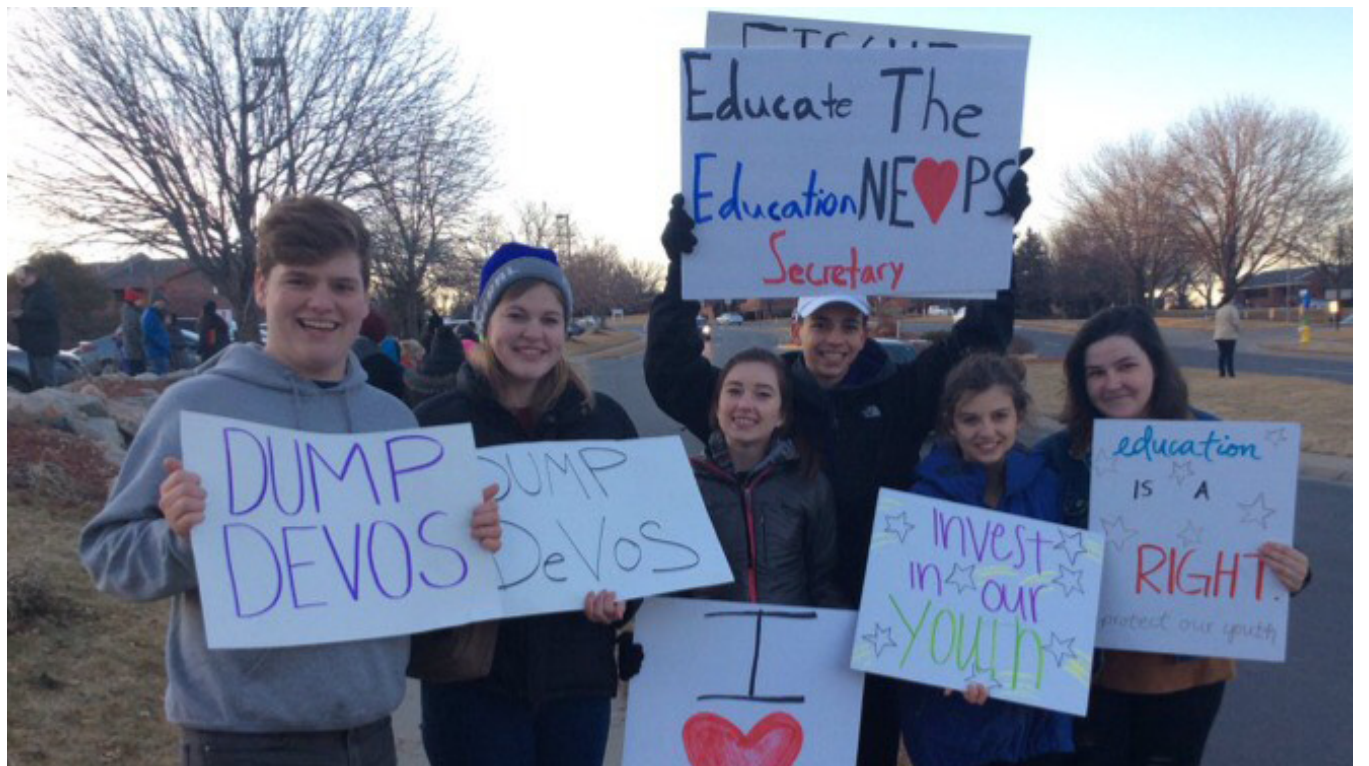 Educate The
Education NE♥PS
Secretary
DUMP
DEVOS
DUMP
DeVoS
I
♥
invest
in our
YOUTH
education
IS A
RIGHT.
protect our youth